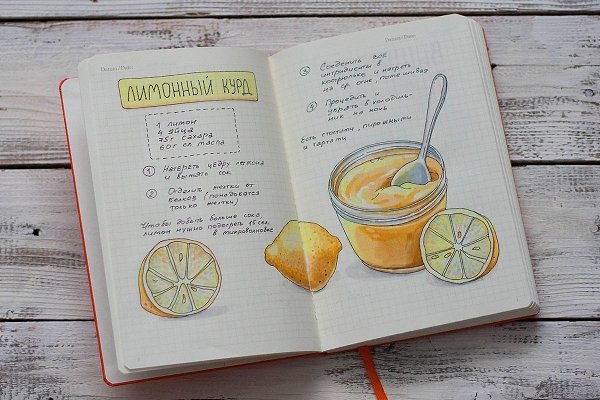 Datum / Date:
ЛИМОННЫЙ КУРД
1 лимон
4 яйца
75г сахара
60г сл. масла
1 Натереть цедру лимона
и выжать сок
2 Отделить желтки от
белков (понадобятся
только желтки)
Чтобы добыть больше сока,
лимон нужно подогреть 15 сек.
в микроволновке
Datum / Date:
3 Соединить все
ингридиенты в
кастрюльке и нагреть
на ср огне, помешивая
Процедить и
убрать в холодиль-
ник на ночь
Есть с тостами, пирожными
и тартами